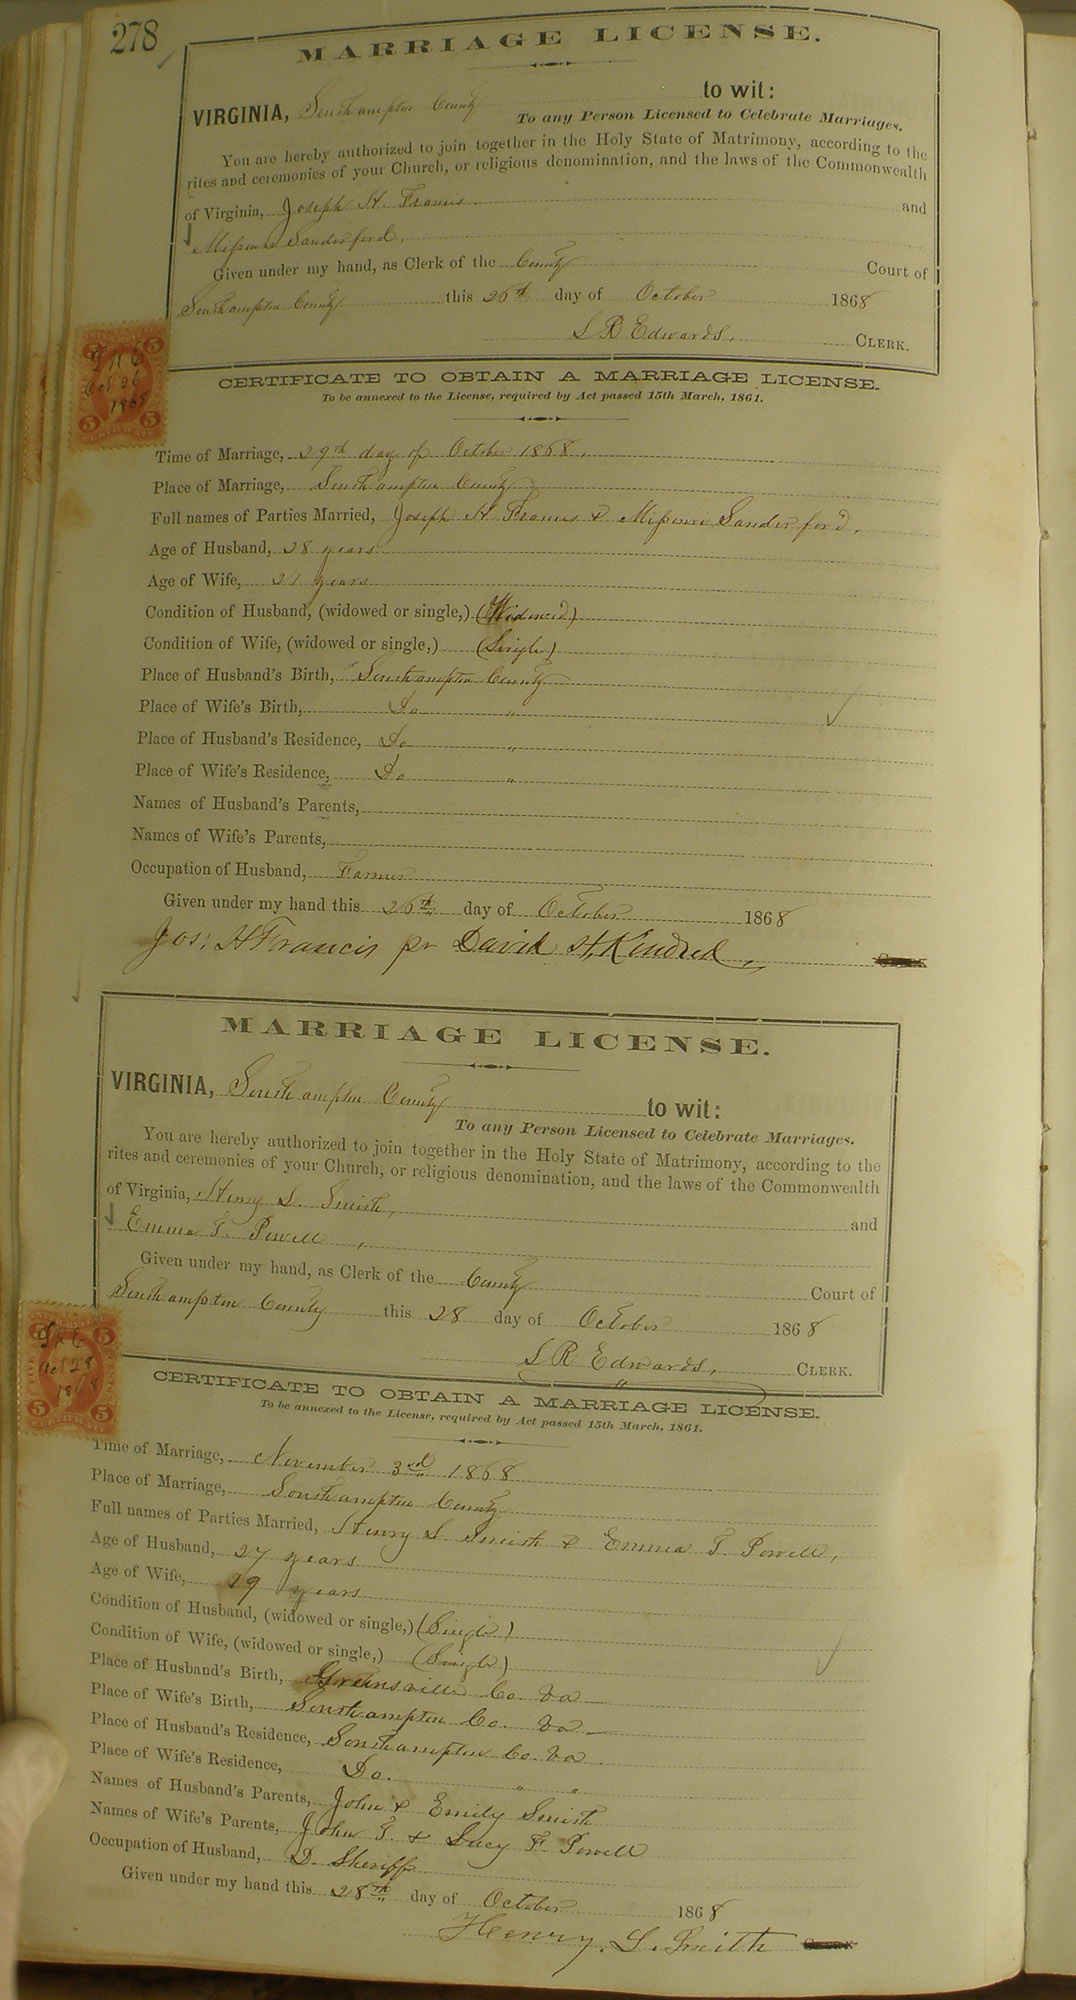 278
MARRIAGE LICENSE.
VIRGINIA, Southampton County to wit:
To any Person Licensed to Celebrate Marriages.
You are hereby authorized to join together in the Holy State of Matrimony, according to the
rites and ceremonies of your Church, or religious denomination, and the laws of the Commonwealth
of Virginia, Joseph H. Francis and
Missouri Sanderford.
Given under my hand, as Clerk of the County Court of
Southampton County this 26th day of October 1868
L R Edwards, CLERK.
5 5
Oct 26
1868
5 5
CERTIFICATE
CERTIFICATE TO OBTAIN A MARRIAGE LICENSE.
To be annexed to the License, required by Act passed 15th March, 1861.
Time of Marriage, 29th day of October 1868.
Place of Marriage, Southampton County
Full names of Parties Married, Joseph H Francis & Missouri Sanderford.
Age of Husband, 28 years
Age of Wife, 21 years
Condition of Husband, (widowed or single,) (Widowed)
Condition of Wife, (widowed or single,) (Single)
Place of Husband's Birth, Southampton County
Place of Wife's Birth, Do "
Place of Husband's Residence, Do "
Place of Wife's Residence, Do "
Names of Husband's Parents,
Names of Wife's Parents,
Occupation of Husband, Farmer
Given under my hand this 26th day of October 1868
Jos: H Francis pr David H. Kindred,
MARRIAGE LICENSE.
VIRGINIA, Southampton County to wit:
To any Person Licensed to Celebrate Marriages.
You are hereby authorized to join together in the Holy State of Matrimony, according to the
rites and ceremonies of your Church, or religious denomination, and the laws of the Commonwealth
of Virginia, Henry L. Smith, and
Emma T. Powell,
Given under my hand, as Clerk of the County Court of
Southampton County this 28 day of October 1868
L R Edwards, CLERK.
5 5
Oct 28
1868
5 5
CERTIFICATE
CERTIFICATE TO OBTAIN A MARRIAGE LICENSE.
To be annexed to the License, required by Act passed 15th March, 1861.
Time of Marriage, November 3rd 1868
Place of Marriage, Southampton County
Full names of Parties Married, Henry L. Smith & Emma T. Powell,
Age of Husband, 27 years
Age of Wife, 19 years
Condition of Husband, (widowed or single,) (Single)
Condition of Wife, (widowed or single,) (Single)
Place of Husband's Birth, Greensville Co. Va
Place of Wife's Birth, Southampton Co. Va
Place of Husband's Residence, Southampton Co. Va
Place of Wife's Residence, Do. " "
Names of Husband's Parents, John & Emily Smith
Names of Wife's Parents, John T. & Lucy F. Powell
Occupation of Husband, D. Sheriff
Given under my hand this 28th day of October 1868
Henry. L. Smith